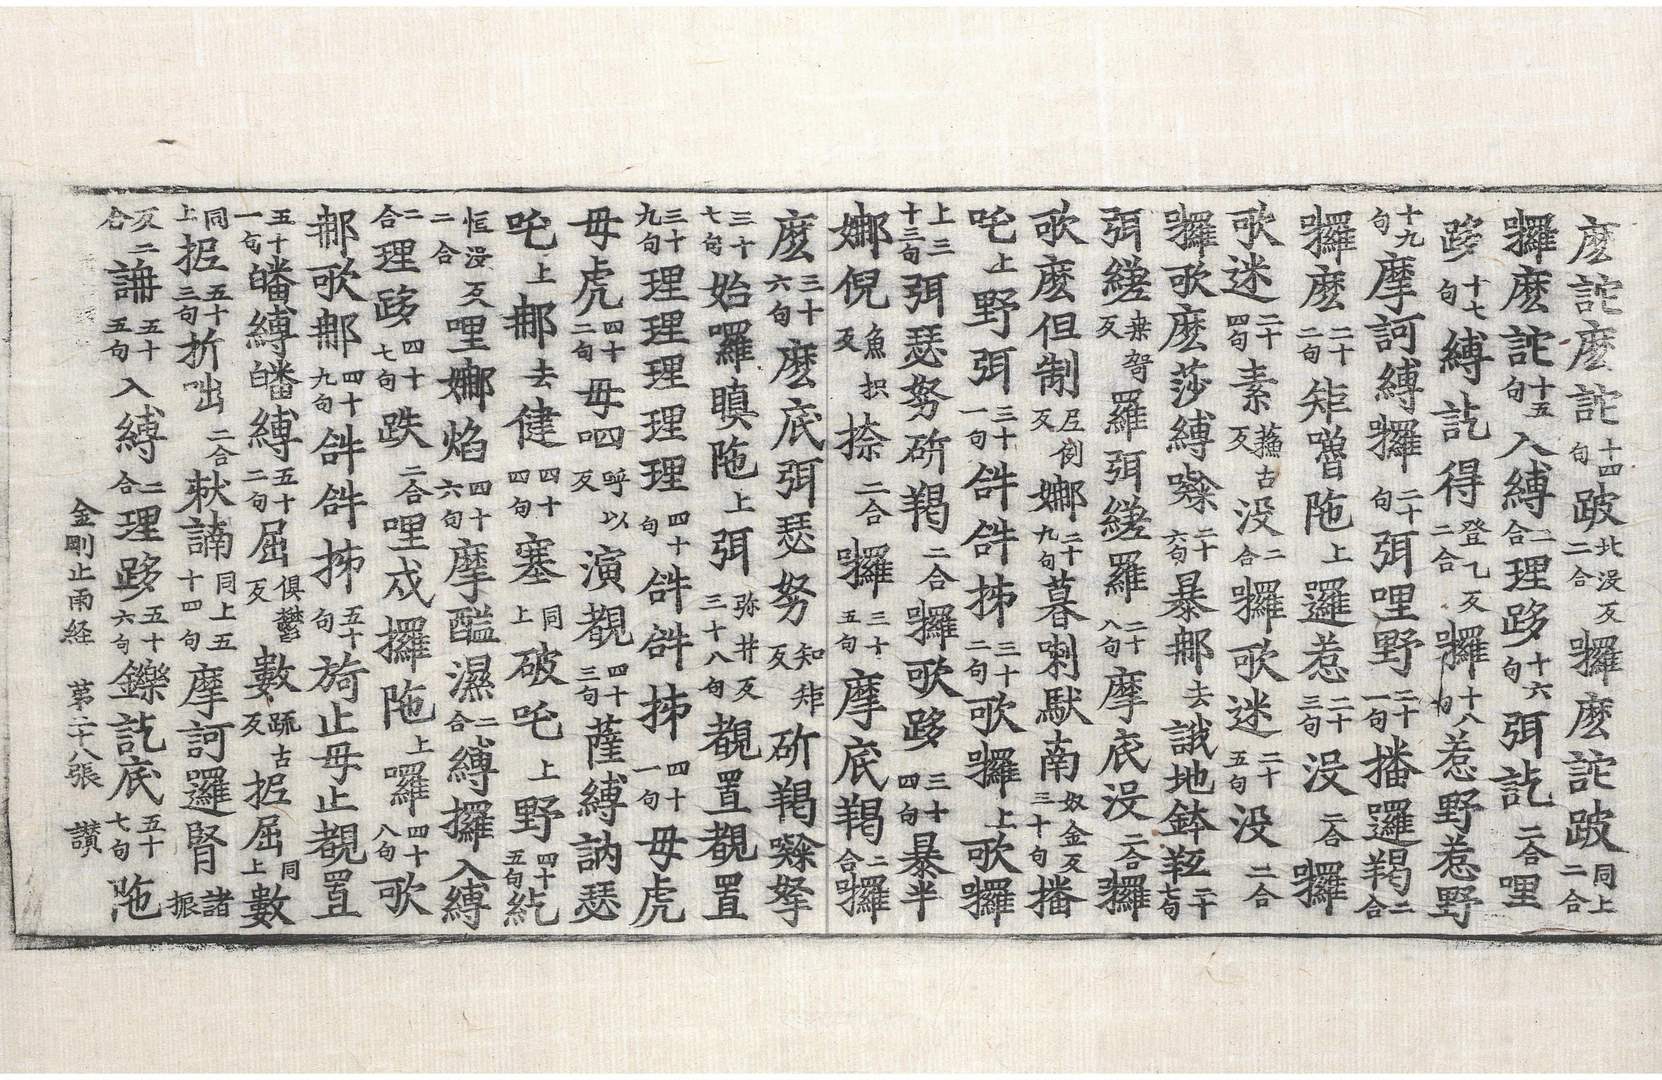 麽詑麽詑十四句跛北没反二合囉麽詑跛同上二合
囉麽詑十五句入縛二合理跢十六句弭訖二合哩
跢十七句縛訖得登乙反二合囉十八句惹野惹野
十九句摩訶縛囉二十句弭哩野二十一句播邏羯二合
囉麽二十二句矩嚕陁上邏惹二十三句没二合囉
歌迷二十四句素蘓古反没二合囉歌迷二十五句没二合
囉歌麽莎縛㘑二十六句暴那去誐地鉢羝二十七句
弭縒桒笴反羅弭縒羅二十八句摩底没二合囉
歌麽但制反娜二十九句暮喇馱南奴金反三十句播
吒上野弭三十一句㖑㖑抹三十二句歌囉上歌囉
上三十三句弭瑟努斫羯二合囉歌跢三十四句暴半
娜倪魚枳反捺二合囉三十五句摩底羯二合囉
麽三十六句麽底弭瑟努知矩反斫羯㘑拏
三十七句始囉瞋陁上弭弥井反三十八句覩置覩置
三十九句理理理理四十句㖑㖑抹四十一句毋虎
毋虎四十二句毋呬呼以反演覩四十三句薩縛訥瑟
吒上那去健四十四句塞同上破吒上野四十五句紇
恒没反二合哩娜焰四十六句摩醯濕二合縛攞入縛
二合理跢四十七句跌二合哩戍攞陁上囉四十八句歌
那歌那四十九句㖑㖑抹五十句旖止毋止覩置
五十一句皤縛皤縛五十二句屈俱鬱反數䟽古反抳屈上數同
上抳五十三句折咄二合𣙙諵同上五十四句摩訶邏腎諸振
反二合謆五十五句入縛二合理跢五十六句鑠訖底五十七句陁
金剛止雨経　第二十八張　讃